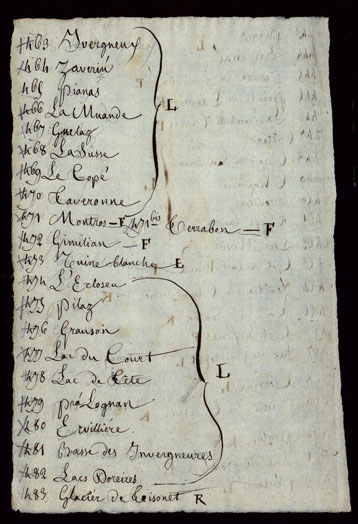 463 Ivergneux
464 Zaverin
465 Pianas
466 La Muande L
467 Guelaz
468 La Susse
469 Le Copé
470 Taveronne
471 Montros — F 471 bis Terrabon — F
472 Gimilian — F
473 Tuine blanche L
474 L'Ecloseu
475 Pilaz
476 Grauson
477 Lac du Court L
478 Lac de Tête
479 prá Lognan
480 Ervillière
481 Basse des Invergneures
482 Lacs Doreires
483 Glacier de Coisonet R